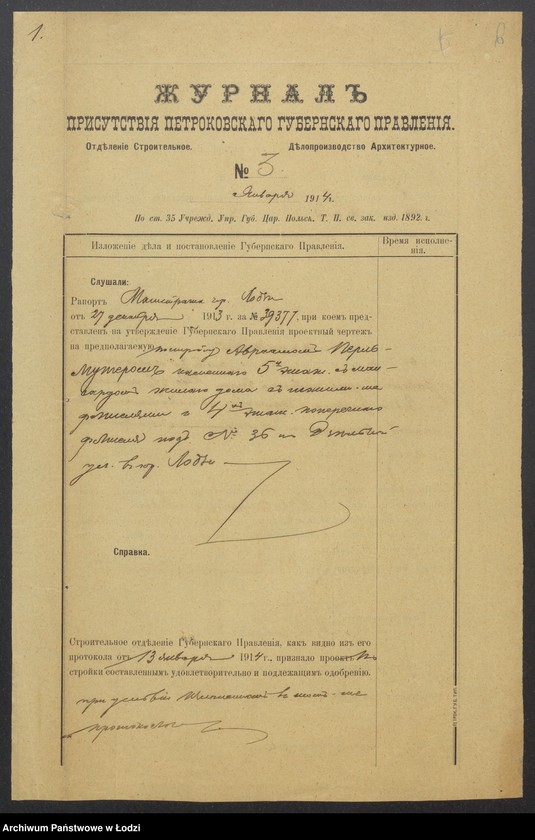 1.
ЖУРНАЛЪ
ПРИСУТСТВІЯ ПЕТРОКОВСКАГО ГУБЕРНСКАГО ПРАВЛЕНІЯ.
Отдѣленіе Строительное. Дѣлопроизводство Архитектурное.
№ 3.
Января 1914 г.
По ст. 35 Учрежд. Упр. Губ. Цар. Польск. Т. II. св. зак. изд. 1892. г.
Изложеніе дѣла и постановленіе Губернскаго Правленія. Время исполне-
нія.
Слушали:
Рапортъ Магистрата гор. Лодзи
отъ 27 декабря 1913 г. за № 39377, при коемъ пред-
ставленъ на утвержденіе Губернскаго Правленія проектный чертежъ
на предполагаемую постройку Авраамомъ Перль-
мутеромъ каменнаго 5ти этаж. съ ман-
сардою жилаго дома съ
флигелями и 4хъ этаж. поперечнаго
флигеля подъ № 36 по
ул. въ гор. Лодзи
Справка.
Строительное отдѣленіе Губернскаго Правленія, какъ видно изъ его
протокола отъ 13 января 1914 г., признало проектъ
стройки составленнымъ удовлетворительно и подлежащимъ одобренію.
при условіи въ
протоколѣ
Archiwum Państwowe w Łodzi